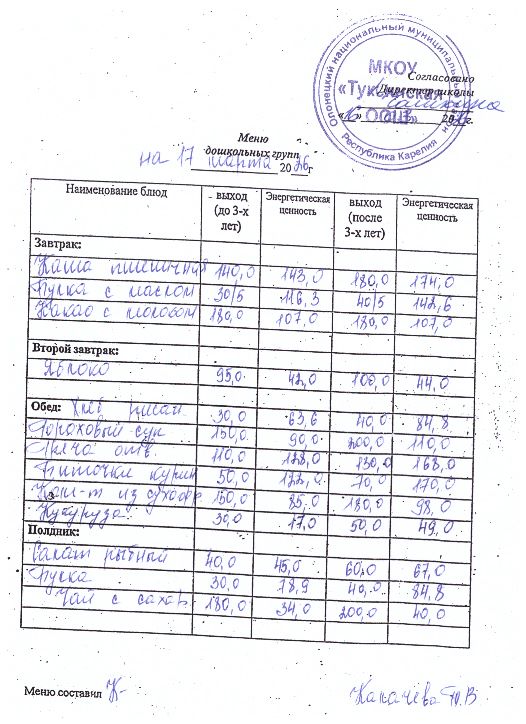 Олонецкий национальный муниципальный
МКОУ
«Туксинская
ООШ»
Республика Карелия
Согласовано
Директор школы
Меню
дошкольных групп
на 17 марта 2026г
Наименование блюд выход (до 3-х лет) Энергетическая ценность выход (после 3-х лет) Энергетическая ценность
Завтрак:
Каша пшеничная 140,0 143,0 180,0 174,0
Булка с маслом 30/5 116,3 40/5 142,6
Какао с молоком 180,0 107,0 180,0 107,0
Второй завтрак:
Яблоко 95,0 42,0 100,0 44,0
Обед: Хлеб ржан 30,0 63,6 40,0 84,8
Гороховый суп 150,0 90,0 200,0 110,0
Греча отв. 110,0 128,0 130,0 168,0
Биточки курин 50,0 122,0 70,0 170,0
Ком-т из сухофр 150,0 85,0 180,0 98,0
Кукуруза 30,0 17,0 50,0 49,0
Полдник:
Салат рыбный 40,0 45,0 60,0 67,0
Булка 30,0 78,9 40,0 84,8
Чай с сахар 180,0 34,0 200,0 40,0
Меню составил Капачева Ю.В